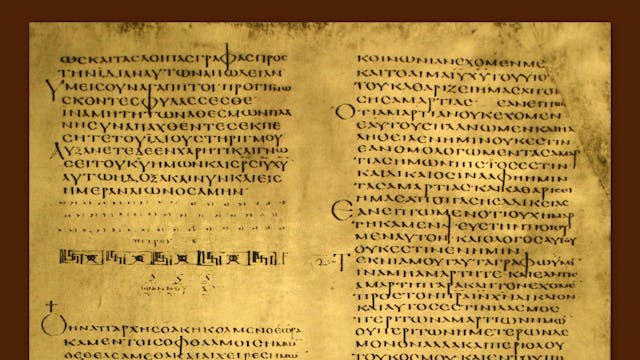 ΩϹΚΑΙΤΑϹΛΟΙΠΑϹΓΡΑΦΑϹΠΡΟϹ
ΤΗΝΙΔΙΑΝΑΥΤΩΝΑΠΩΛΕΙΑΝ
ΥΜΕΙϹΟΥΝΑΓΑΠΗΤΟΙΠΡΟΓΙΝΩ
ϹΚΟΝΤΕϹΦΥΛΑϹϹΕϹΘΕ
ΙΝΑΜΗΤΗΤΩΝΑΘΕϹΜΩΝΠΛΑ
ΝΗϹΥΝΑΠΑΧΘΕΝΤΕϹΕΚΠΕ
ϹΗΤΕΤΟΥΙΔΙΟΥϹΤΗΡΙΓΜΟΥ
ΑΥΞΑΝΕΤΕΔΕΕΝΧΑΡΙΤΙΚΑΙΓΝΩ
ϹΕΙΤΟΥΚΥΗΜΩΝΚΑΙϹΡϹΙΥΧΥ
ΑΥΤΩΗΔΟΞΑΚΑΙΝΥΝΚΑΙΕΙϹ
ΗΜΕΡΑΝΑΙΩΝΟϹΑΜΗΝ
ΠΕΤΡΟΥ
ΙΩΑΝΝΟΥ
ΟΗΝΑΠΑΡΧΗϹΟΑΚΗΚΟΑΜΕΝΟΕΩΡΑ
ΚΑΜΕΝΤΟΙϹΟΦΘΑΛΜΟΙϹΗΜΩ
ΚΟΙΝΩΝΙΑΝΕΧΟΜΕΝΜΕ
ΚΑΙΤΟΑΙΜΑΙΥΧΥΤΟΥΥΙΟΥ
ΤΟΥΚΑΘΑΡΙΖΕΙΗΜΑϹΑΠΟΠΑ
ϹΗϹΑΜΑΡΤΙΑϹ ΕΑΝΕΙΠΩ
ΟΤΙΑΜΑΡΤΙΑΝΟΥΚΕΧΟΜΕΝ
ΕΑΥΤΟΥϹΠΛΑΝΩΜΕΝΚΑΙΗΑ
ΛΗΘΕΙΑΕΝΗΜΙΝΟΥΚΕϹΤΙΝ
ΕΑΝΟΜΟΛΟΓΩΜΕΝΤΑϹΑΜΑΡ
ΤΙΑϹΗΜΩΝΠΙϹΤΟϹΕϹΤΙΝ
ΚΑΙΔΙΚΑΙΟϹΙΝΑΑΦΗΗΜΙΝ
ΤΑϹΑΜΑΡΤΙΑϹΚΑΙΚΑΘΑΡΙϹΗ
ΗΜΑϹΑΠΟΠΑϹΗϹΑΔΙΚΙΑϹ
ΕΑΝΕΙΠΩΜΕΝΟΤΙΟΥΧΗΜΑΡ
ΤΗΚΑΜΕΝ ΨΕΥϹΤΗΝΠΟΙΟΥ
ΜΕΝΑΥΤΟΝ ΚΑΙΟΛΟΓΟϹΑΥΤΟΥ
ΟΥΚΕϹΤΙΝΕΝΗΜΙΝ
ΤΕΚΝΙΑΜΟΥΤΑΥΤΑΓΡΑΦΩΥΜΙ
ΙΝΑΜΗΑΜΑΡΤΗΤΕ ΚΑΙΕΑΝΤΙϹ
ΑΜΑΡΤΗΠΑΡΑΚΛΗΤΟΝΕΧΟΜΕ
ΠΡΟϹΤΟΝΠΡΑΙΝΧΝΔΙΚΑΙΟΝ
ΚΑΙΑΥΤΟϹΕϹΤΙΝΙΛΑϹΜΟϹ
ΠΕΡΙΤΩΝΑΜΑΡΤΙΩΝΗΜΩ
ΟΥΠΕΡΙΤΩΝΗΜΕΤΕΡΩΝΔΕ